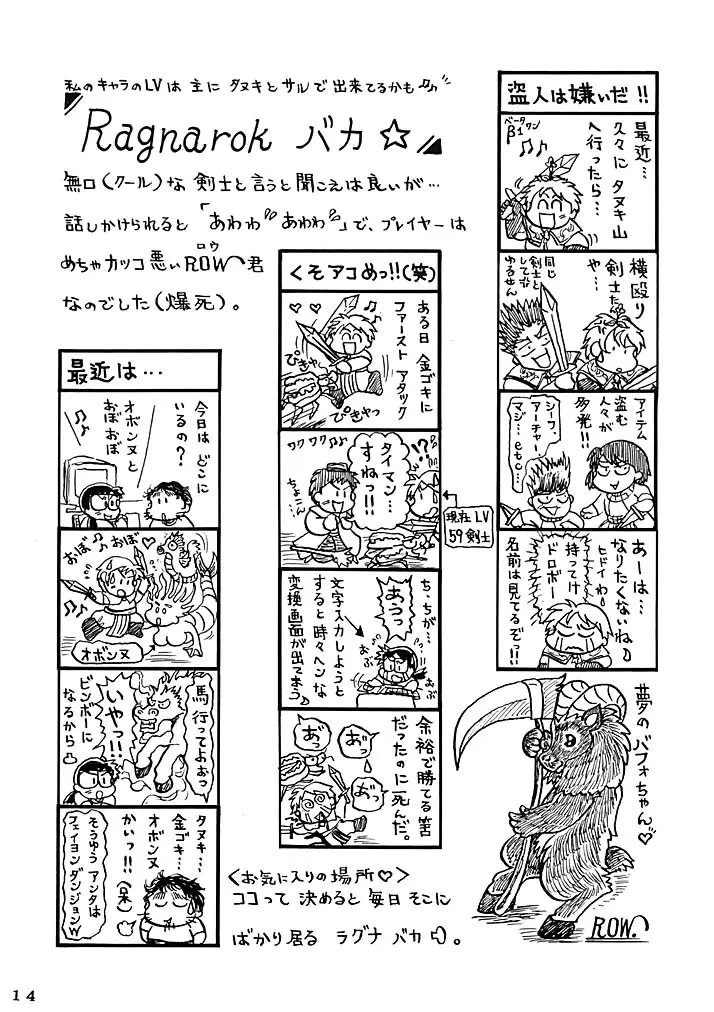 私のキャラのLVは主にタヌキとサルで出来てるかも
Ragnarok バカ☆
無口(クール)な剣士と言うと聞こえは良いが…
話しかけられると「あわわ あわわ」で、プレイヤーは
めちゃカッコ悪いROW君
ロウ
なのでした(爆死)。
盗人は嫌いだ!!
最近…
久々にタヌキ山
へ行ったら…
ベータワン
β1
横殴り
剣士たち
や…
同じ
剣士と
して
ゆるせん
アイテム
盗む
人々が
多発!!
シーフ、
アーチャー、
マジ…etc…
あーは…
なりたくないね
ヒドイわ
持ってけ
ドロボー
名前は見てるぞっ!!
くそアコめっ!!(笑)
ある日 金ゴキに
ファースト アタック
ぴきゃー
ぴきゃっ
ワクワク
タイマン…
すねっ!!
!?
ちょこん
現在LV
59剣士
ち、ちが…
あうっ
文字入力しようと
すると時々ヘンな
変換画面が出てまう
おぶ
おぶ
余裕で勝てる筈
だったのに死んだ。
おっ
おっ
おっ
最近は…
今日はどこに
いるの?
オボンヌと
おぼおぼ
おぼ
おぼ
オボンヌ
馬行ってよおっ
いやっ!!
ビンボーに
なるから
タヌキ…
金ゴキ…
オボンヌ
かいっ!!
(呆)
そうゆう アンタは
フェイヨン ダンジョンw
夢のバフォちゃん♡
ROW
<お気に入りの場所♡>
ココって 決めると 毎日 そこに
ばかり居る ラグナ バカ。
14